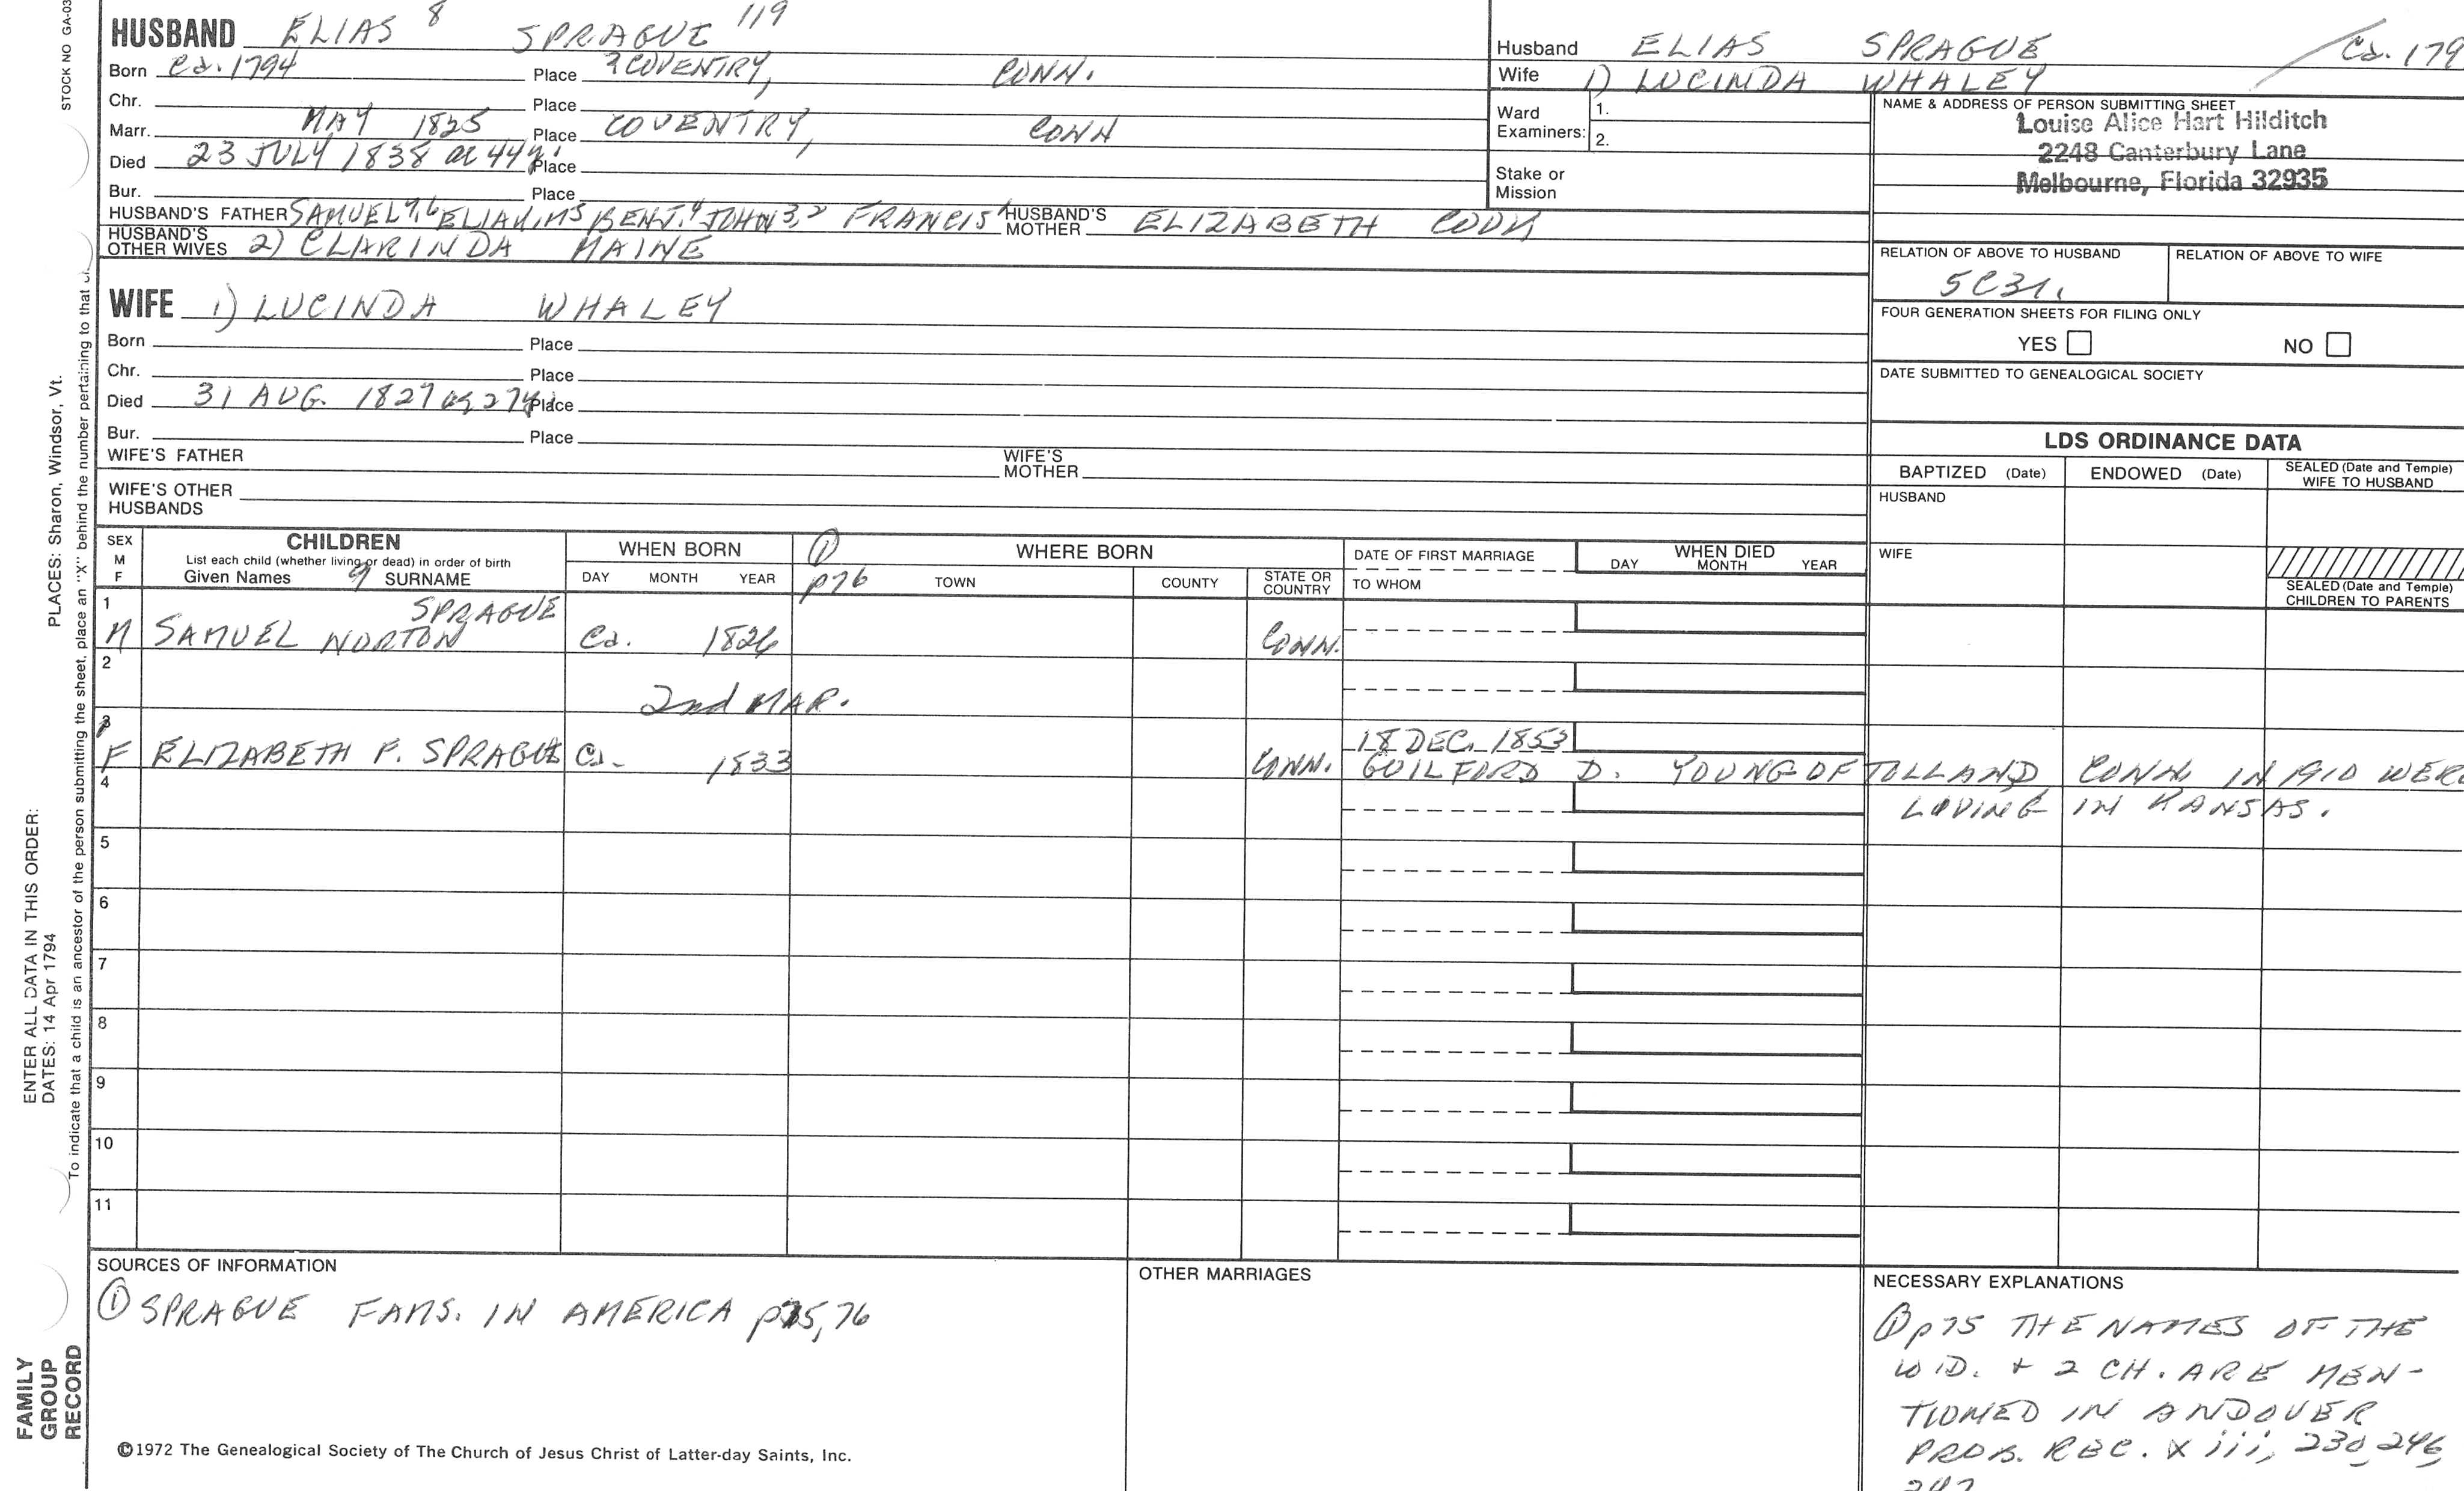 STOCK NO GA-03
HUSBAND ELIAS 8 SPRAGUE 119
Born Ca. 1794 Place ? COVENTRY, CONN.
Chr. Place
Marr. MAY 1825 Place COVENTRY, CONN
Died 23 JULY 1838 ae 44y. Place
Bur. Place
HUSBAND'S FATHER SAMUEL 7,6 ELIAKIM 5 BENJ. 4 JOHN 3,2 FRANCIS 1 HUSBAND'S MOTHER ELIZABETH
HUSBAND'S OTHER WIVES 2) CLARINDA MAINE
WIFE 1) LUCINDA WHALEY
Born Place
Chr. Place
Died 31 AUG. 1827 27y. Place
Bur. Place
WIFE'S FATHER WIFE'S MOTHER
WIFE'S OTHER HUSBANDS
Husband ELIAS SPRAGUE Ca. 179
Wife 1) LUCINDA WHALEY
Ward Examiners: 1.
2.
Stake or Mission
NAME & ADDRESS OF PERSON SUBMITTING SHEET
Louise Alice Hart Hilditch
2248 Canterbury Lane
Melbourne, Florida 32935
RELATION OF ABOVE TO HUSBAND RELATION OF ABOVE TO WIFE
FOUR GENERATION SHEETS FOR FILING ONLY
YES NO
DATE SUBMITTED TO GENEALOGICAL SOCIETY
LDS ORDINANCE DATA
BAPTIZED (Date) ENDOWED (Date) SEALED (Date and Temple) WIFE TO HUSBAND
HUSBAND
WIFE
SEALED (Date and Temple) CHILDREN TO PARENTS
SEX M F
CHILDREN
List each child (whether living or dead) in order of birth
Given Names 9 SURNAME
WHEN BORN
DAY MONTH YEAR
1 p76
WHERE BORN
TOWN COUNTY STATE OR COUNTRY
DATE OF FIRST MARRIAGE
TO WHOM
WHEN DIED
DAY MONTH YEAR
1 SPRAGUE
M SAMUEL NORTON Ca. 1826 CONN.
2
2nd MAR.
3 18 DEC. 1853
F ELIZABETH P. SPRAGUE Ca. 1833 CONN. GUILFORD D. YOUNG OF TOLLAND CONN. IN 1910 WERE
4 LIVING IN KANSAS.
5
6
7
8
9
10
11
SOURCES OF INFORMATION
① SPRAGUE FAMS. IN AMERICA p75, 76
OTHER MARRIAGES
NECESSARY EXPLANATIONS
① p75 THE NAMES OF THE
WID. + 2 CH. ARE MEN-
TIONED IN ANDOVER
PROB. REC. xiii, 230, 246,
247
©1972 The Genealogical Society of The Church of Jesus Christ of Latter-day Saints, Inc.
FAMILY GROUP RECORD
ENTER ALL DATA IN THIS ORDER:
DATES: 14 Apr 1794
PLACES: Sharon, Windsor, Vt.
To indicate that a child is an ancestor of the person submitting the sheet, place an "X" behind the number pertaining to that